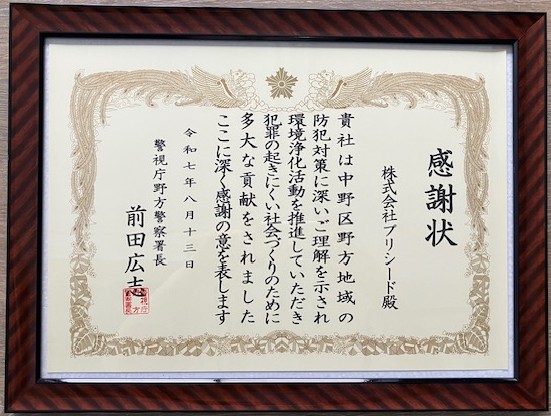 感謝状
株式会社プリシード殿
貴社は中野区野方地域の
防犯対策に深いご理解を示され
環境浄化活動を推進していただき
犯罪の起きにくい社会づくりのために
多大な貢献をされました
ここに深く感謝の意を表します
令和七年八月十三日
警視庁野方警察署長
前田広志